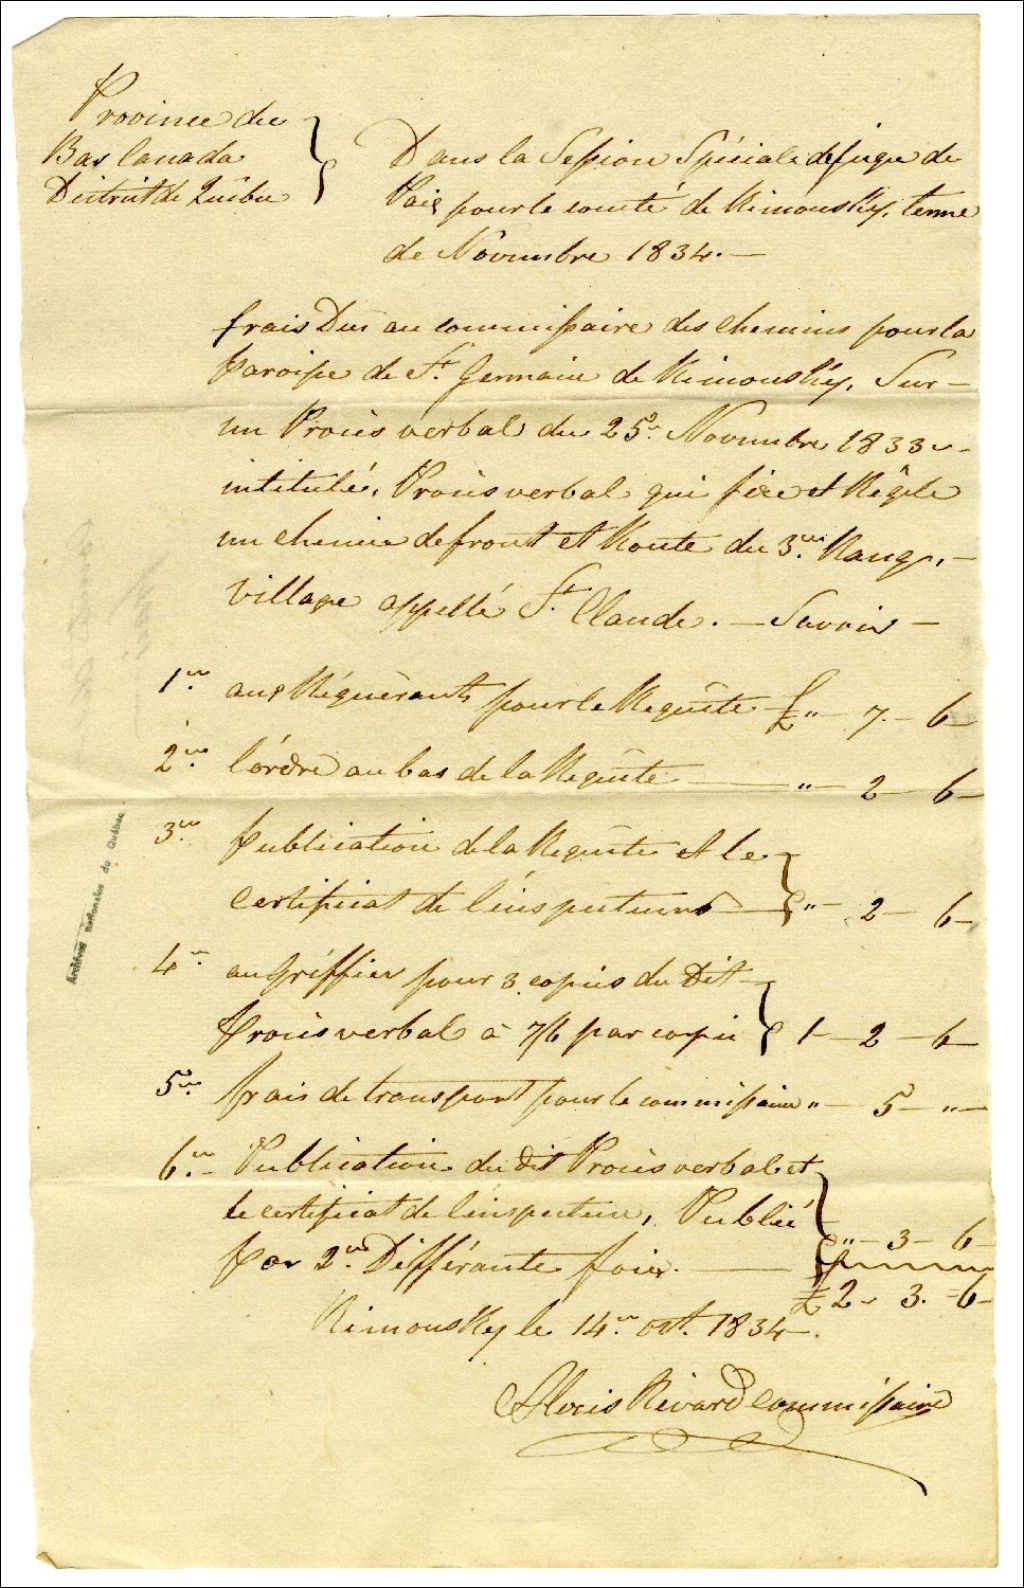 Province du
Bas Canada
District de Québec
Dans la Session Spéciale de juge de
Paix pour le comté de Rimousky, terme
de Nôvembre 1834. —
frais Dus au commissaire des chemins pour la
Paroisse de St. Germain de Rimousky, Sur —
un Procès verbal du 25e. Novembre 1833 -
intitulé, Procès verbal qui fixe et Règele
un chemin de front et Route du 3me. Rang, —
Village appellé St. Claude. — Savoir —
1er. aux Réquèrants pour le Requête — £ " — 7. — 6 —
2me. l'órdre au bas de la Requête — " — 2 — 6 —
3me. Publication de la Requête et le
certificat de l'einspecteurs — " — 2 — 6 —
4e. au Gréffier pour 3 copies du Dit —
Procès verbal à 7/6 par copie 1 — 2 — 6 —
5me. frais de transport pour le commissaire " — 5 — " —
6me. — Publication du dit Procès verbal et
le certificat de l'einspecteur, Publié
Par 2me. Différante fois. — " — 3 — 6 —
£ 2 — 3. = 6 —
Rimousky le 14me. oct. 1834 —.
Alexis Rivard commissaire
Archives nationales du Québec